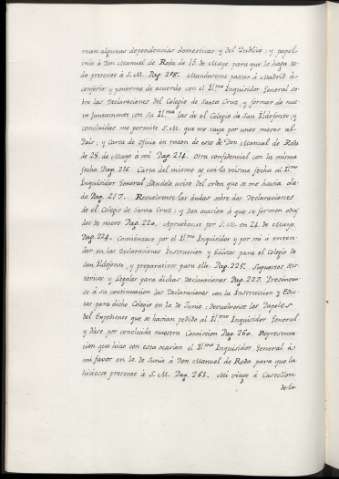 rrian algunas dependencias domesticas y del Publico, y papel
mio à Don Manuel de Roda de 15 de Mayo para que lo haga to-
do presente à S.M. Pag. 208. Mandaronme pasar à Madrid à
conferir y ponerme de acuerdo con el Yll.mo Inquisidor General so-
bre las Declaraciones del Colegio de Santa Cruz, y formar de nue-
vo juntamente con Su Yll.ma las de el Colegio de San Ildefonso; y
concluidas me permite S.M. que me vaya por unos meses al
Pais, y Carta de Oficio en razon de esto de Don Manuel de Roda
de 28 de Mayo à mi Pag. 214. Otra confidencial con la misma
fecha Pag. 216. Carta del mismo y con la misma fecha al Yll.mo
Inquisidor General dandole aviso del orden que se me havia da-
do Pag. 217. Resuelvense las dudas sobre las Declaraciones
de el Colegio de Santa Cruz, y dan ocasion à que se formen otras
de nuevo Pag. 220. Apruebase por S.M. en 21 de Mayo
Pag. 224. Comienzase por el Yll.mo Inquisidor y por mi à enten-
der en las Declaraciones Instruccion y Edictos para el Colegio de
San Ildefonso, y preparativos para ello. Pag. 225. Supuestos his-
toricos y legales para dichas Declaraciones Pag. 227.
se à su continuacion las Declaraciones con la Instruccion y Edic-
tos para dicho Colegio en 1.o de Junio: devuelvense los Papeles
del Expediente que se havian pedido al Yll.mo Inquisidor General
y dase por concluida nuestra Comision Pag. 260. Representa-
cion que hizo con esta ocasion el Yll.mo Inquisidor General à
mi favor en 1.o de Junio à Don Manuel de Roda para que la
hiciesse presente à S.M. Pag. 261. Mi viage à Castellon
de la